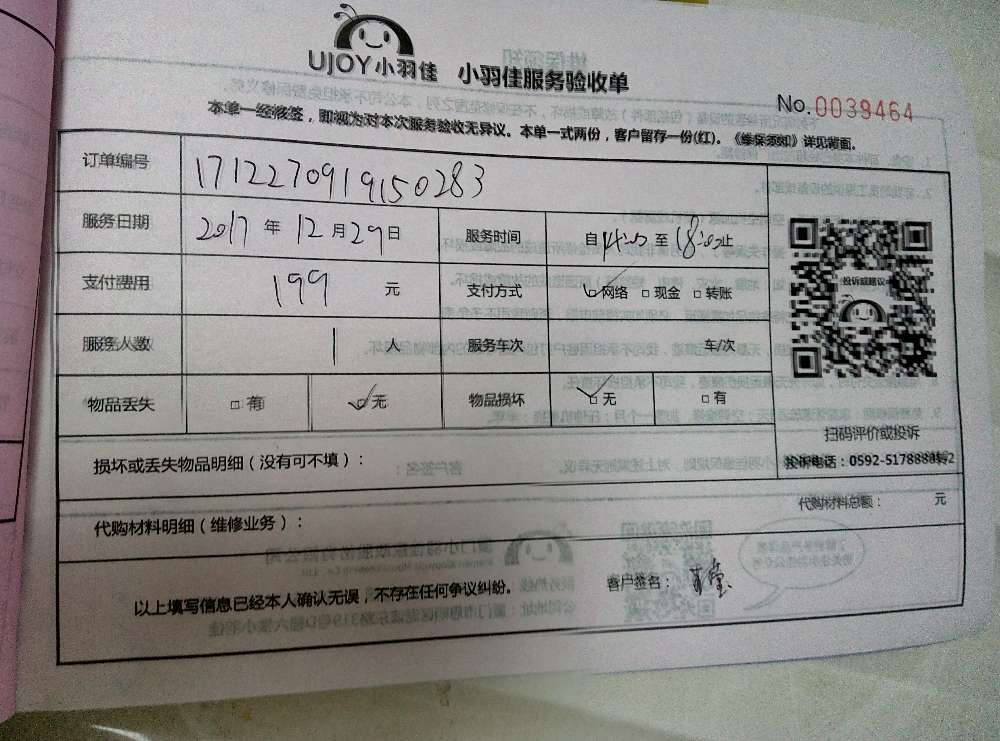 UJOY小羽佳 小羽佳服务验收单
No.0039464
本单一经核签，即视为对本次服务验收无异议。本单一式两份，客户留存一份(红)。《维保须知》详见背面。
订单编号 1712270919150283
服务日期 2017年12月29日 服务时间 自14:00至18:00止
支付费用 199元 支付方式 ☑网络 □现金 □转账
服务人数 1人 服务车次 车/次
物品丢失 □有 ☑无 物品损坏 ☑无 □有
投诉或建议
扫码评价或投诉
投诉电话：0592-5178888转2
损坏或丢失物品明细（没有可不填）：
代购材料明细（维修业务）： 代购材料总额： 元
以上填写信息已经本人确认无误，不存在任何争议纠纷。 客户签名：